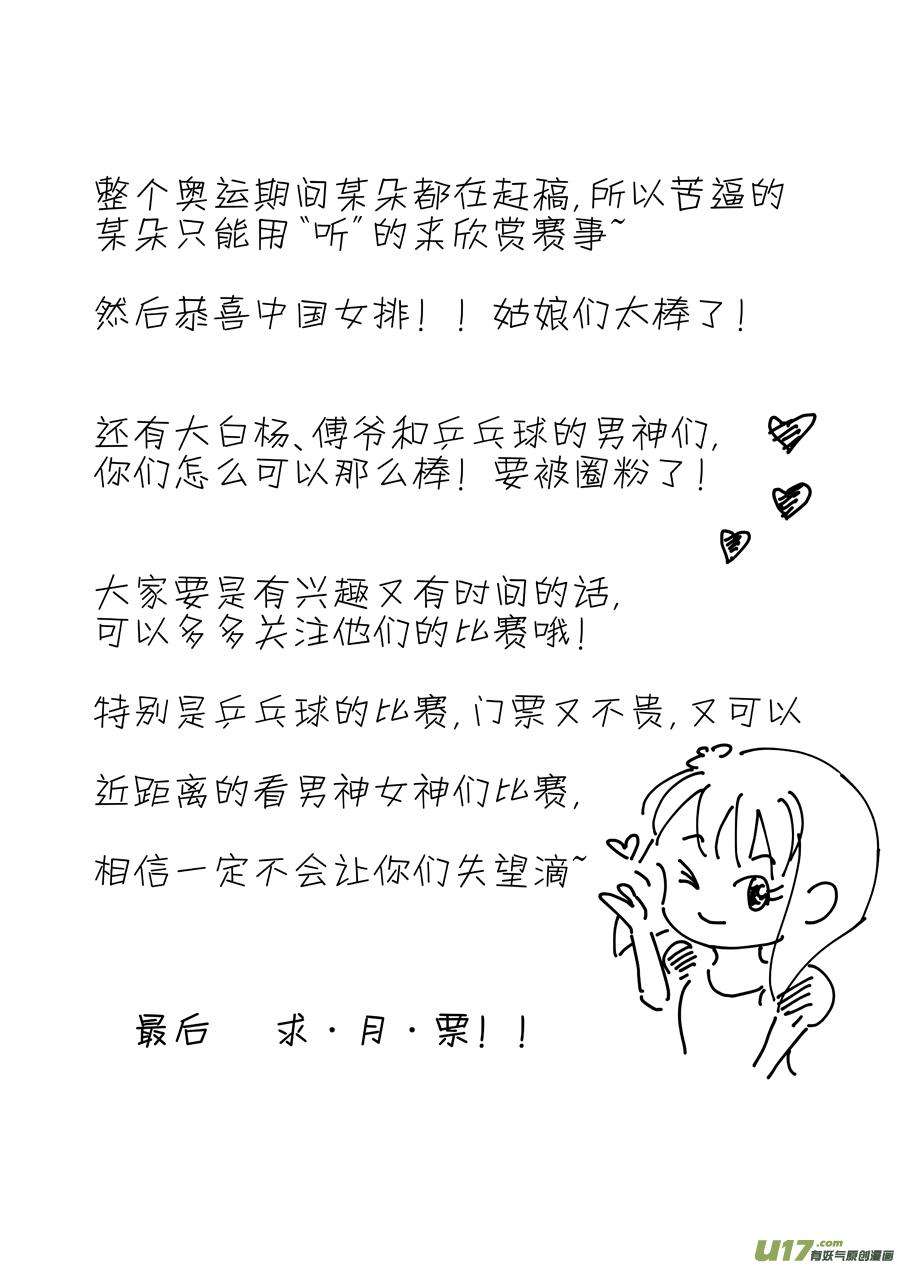 整个奥运期间某朵都在赶稿,所以苦逼的
某朵只能用“听”的来欣赏赛事~
然后恭喜中国女排！！姑娘们太棒了！
还有大白杨、傅爷和乒乓球的男神们,
你们怎么可以那么棒！要被圈粉了！
大家要是有兴趣又有时间的话,
可以多多关注他们的比赛哦！
特别是乒乓球的比赛,门票又不贵,又可以
近距离的看男神女神们比赛,
相信一定不会让你们失望滴~
最后 求·月·票！！
U17.com
有妖气原创漫画